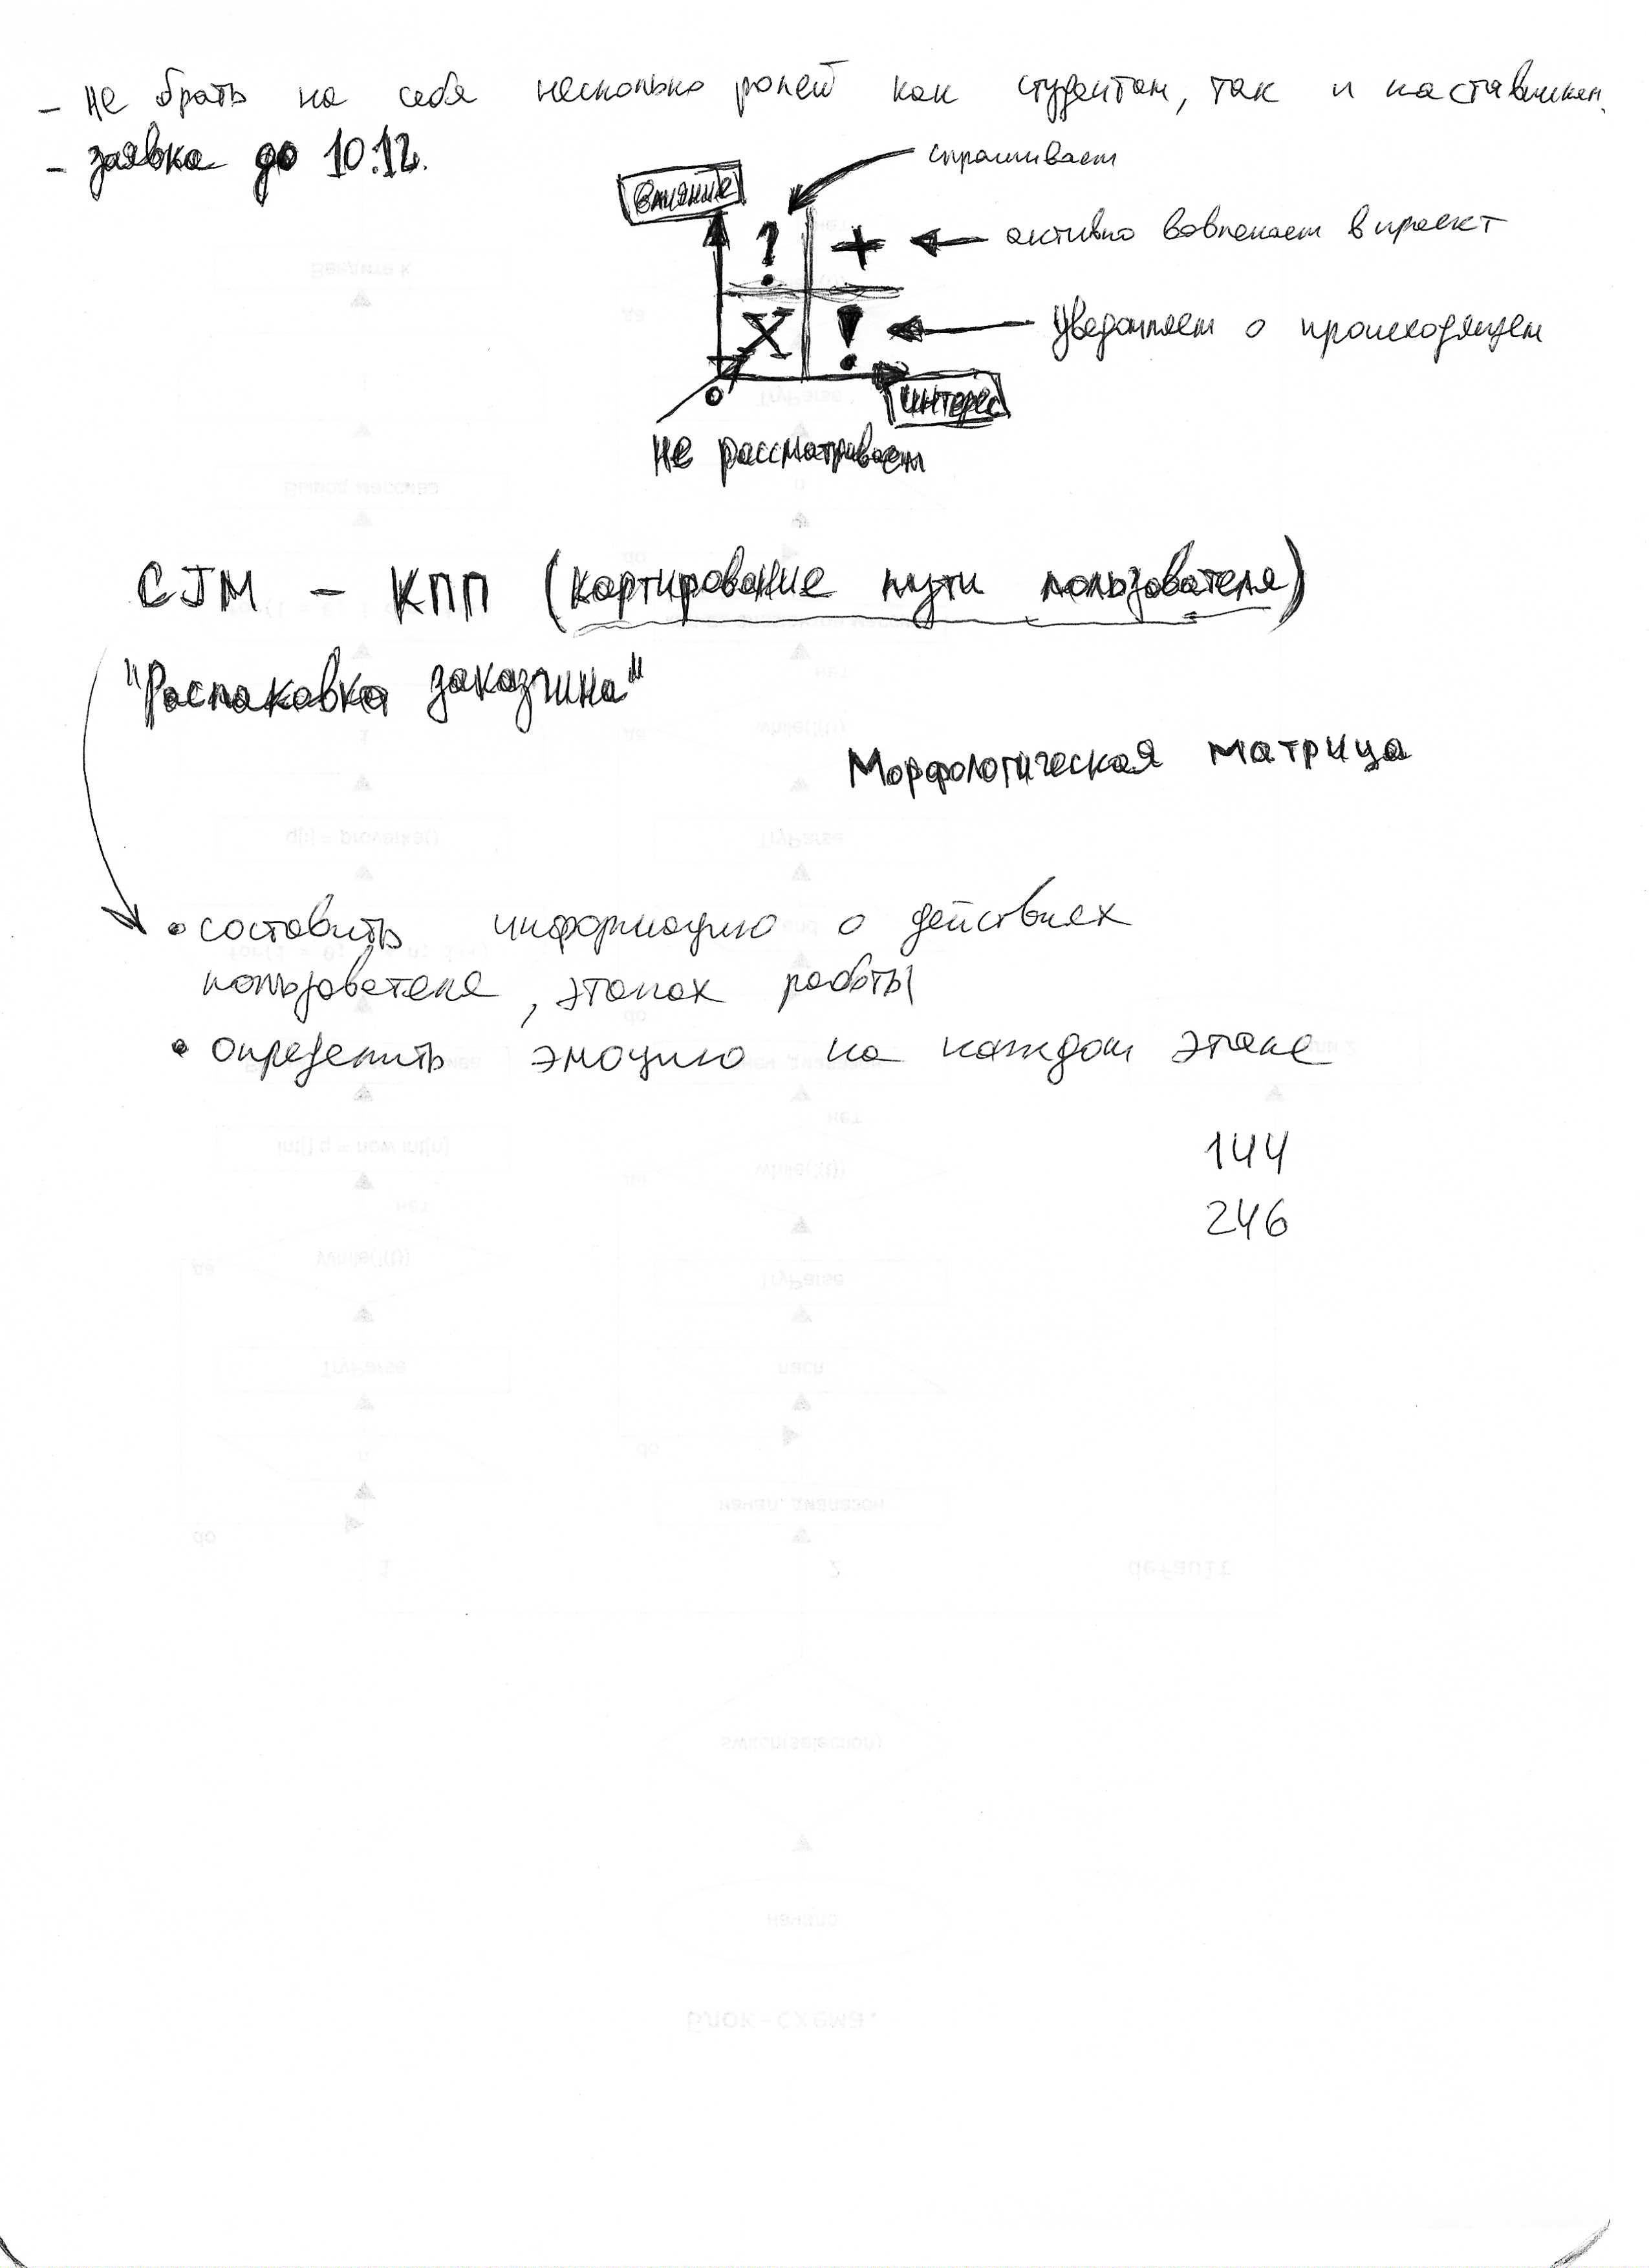 - не брать на себя несколько ролей как студентам, так и наставникам.
- заявка до 10.12.
спрашиваем
Влияние
? + активно вовлекаем в проект
X ! уведомляем о происходящем
0 интерес
не рассматриваем
CJM - КПП (картирование пути пользователя)
"Распаковка заказчика"
Морфологическая матрица
• составить информацию о действиях
пользователя, этапах работы
• определить эмоцию на каждом этапе
144
246